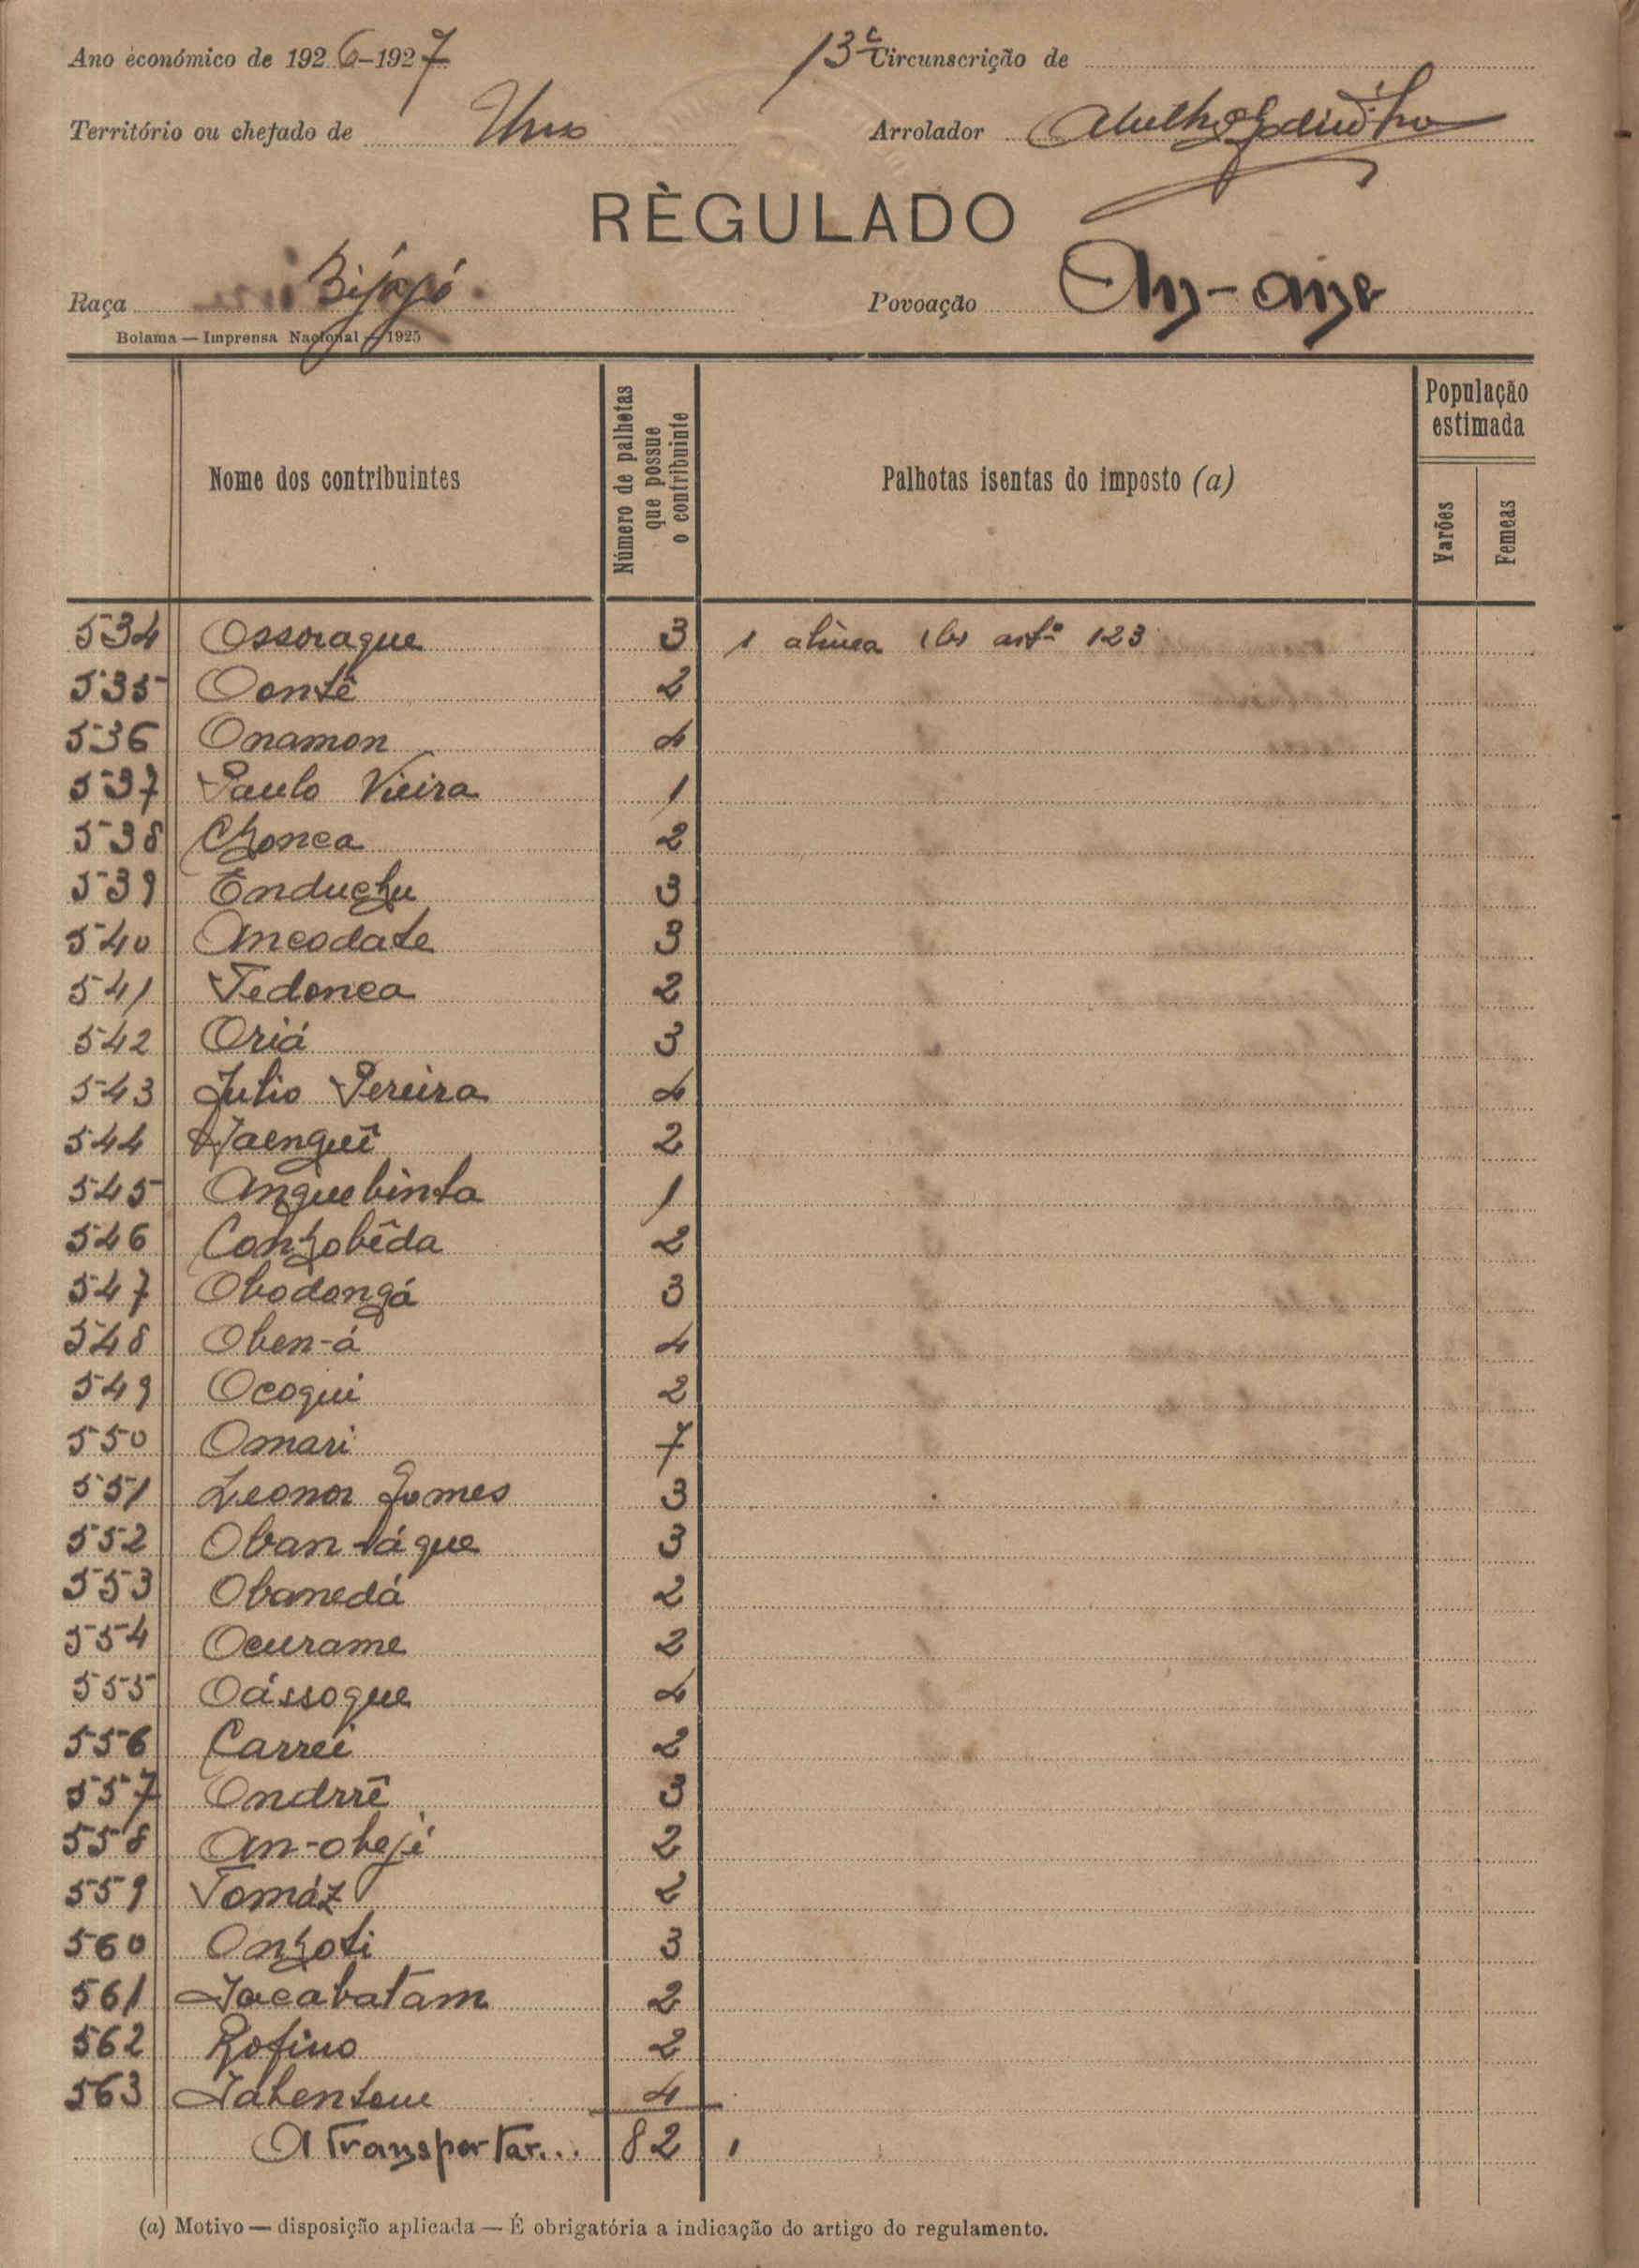 Ano económico de 1926-1927 13ª Circunscrição de
Território ou chefado de Uno Arrolador
RÈGULADO
Raça Bijagó. Povoação An-
Bolama — Imprensa Nacional — 1925
Nome dos contribuintes
Número de palhotas que possue o contribuinte
Palhotas isentas do imposto (a)
População estimada
Varões
Femeas
534 Ossoraque 3 1 alinea (b) artº 123
535 Oontê 2
536 Onamon 4
537 Paulo Vieira 1
538 Chonca 2
539 Enduchu 3
540 Ancodate 3
541 Tedonca 2
542 Oriá 3
543 Julio Pereira 4
544 2
545 Anguebinta 1
546 Conhobêda 2
547 Obodongá 3
548 Oben-á 4
549 Ocoqui 2
550 Omari 7
551 Leonor Gomes 3
552 Oban-táque 3
553 Obanedá 2
554 Ocurame 2
555 Oássoque 4
556 Carrei 2
557 Ondrrê 3
558 An-obeji 2
559 Tomáz 2
560 Onhoti 3
561 Jacabatam 2
562 Rofino 2
563 4
A Transportar... 82 1
(a) Motivo — disposição aplicada — É obrigatória a indicação do artigo do regulamento.